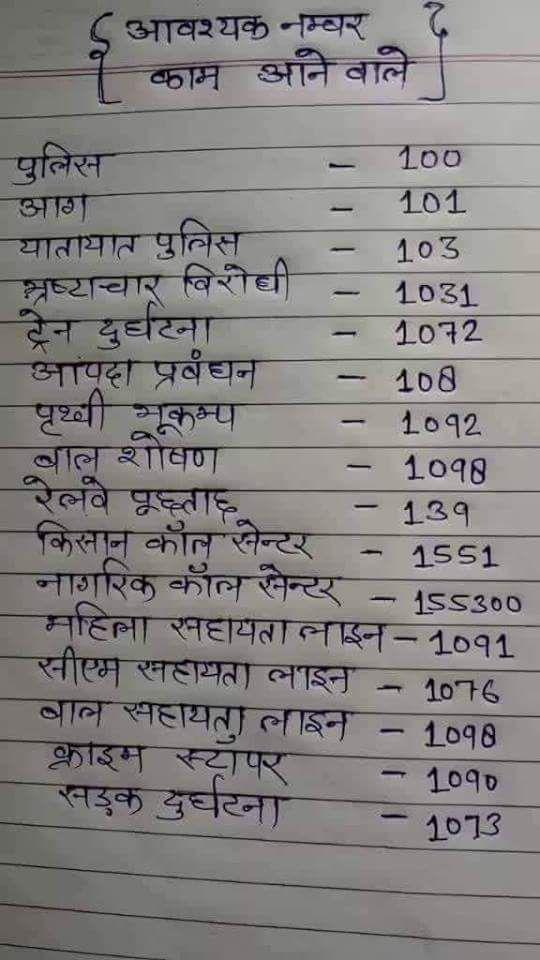 आवश्यक नम्बर
काम आने वाले
पुलिस - 100
आग - 101
यातायात पुलिस - 103
भ्रष्टाचार विरोधी - 1031
ट्रेन दुर्घटना - 1072
आपदा प्रबंधन - 108
पृथ्वी भूकम्प - 1092
बाल शोषण - 1098
रेलवे पूछताछ - 139
किसान कॉल सेन्टर - 1551
नागरिक कॉल सेन्टर - 155300
महिला सहायता लाइन - 1091
सीएम सहायता लाइन - 1076
बाल सहायता लाइन - 1098
क्राइम स्टापर - 1090
सड़क दुर्घटना - 1073